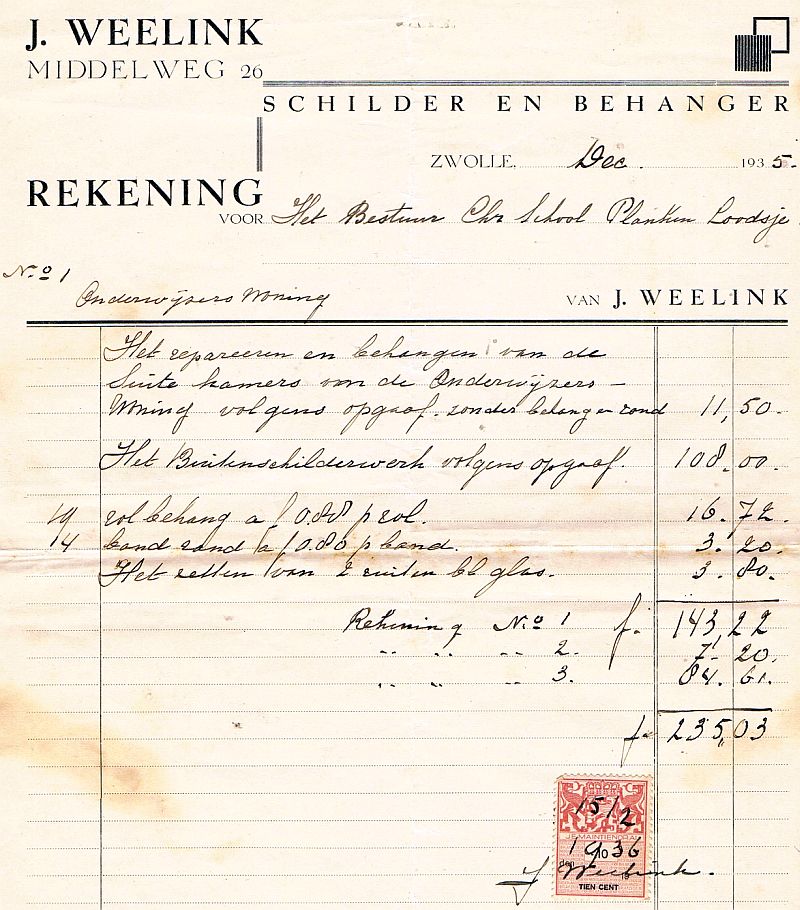 J. WEELINK
MIDDELWEG 26
SCHILDER EN BEHANGER
ZWOLLE, Dec. 1935.-
REKENING
VOOR Het Bestuur Chr School Planken Loodsje.
No 1
Onderwijzers Woning
VAN J. WEELINK
Het repareeren en behangen van de
Suite kamers van de Onderwijzers –
Woning volgens opgaaf. zonder behang en rand 11,50.-
Het Buitenschilderwerk volgens opgaaf. 108.00.-
19 rol behang a f 0.88 p rol. 16.72.
1/4 band rand a f 0.80 p band. 3.20.
Het zetten van 2 ruiten bl glas. 3.80.
Rekening No 1 f.- 143,22
" " " 2. 7-20.
" " " 3. 84.61.
f- 235,03
15/2
JE MAINTIENDRAI
1936
10
den
TIEN CENT
J Weelink.